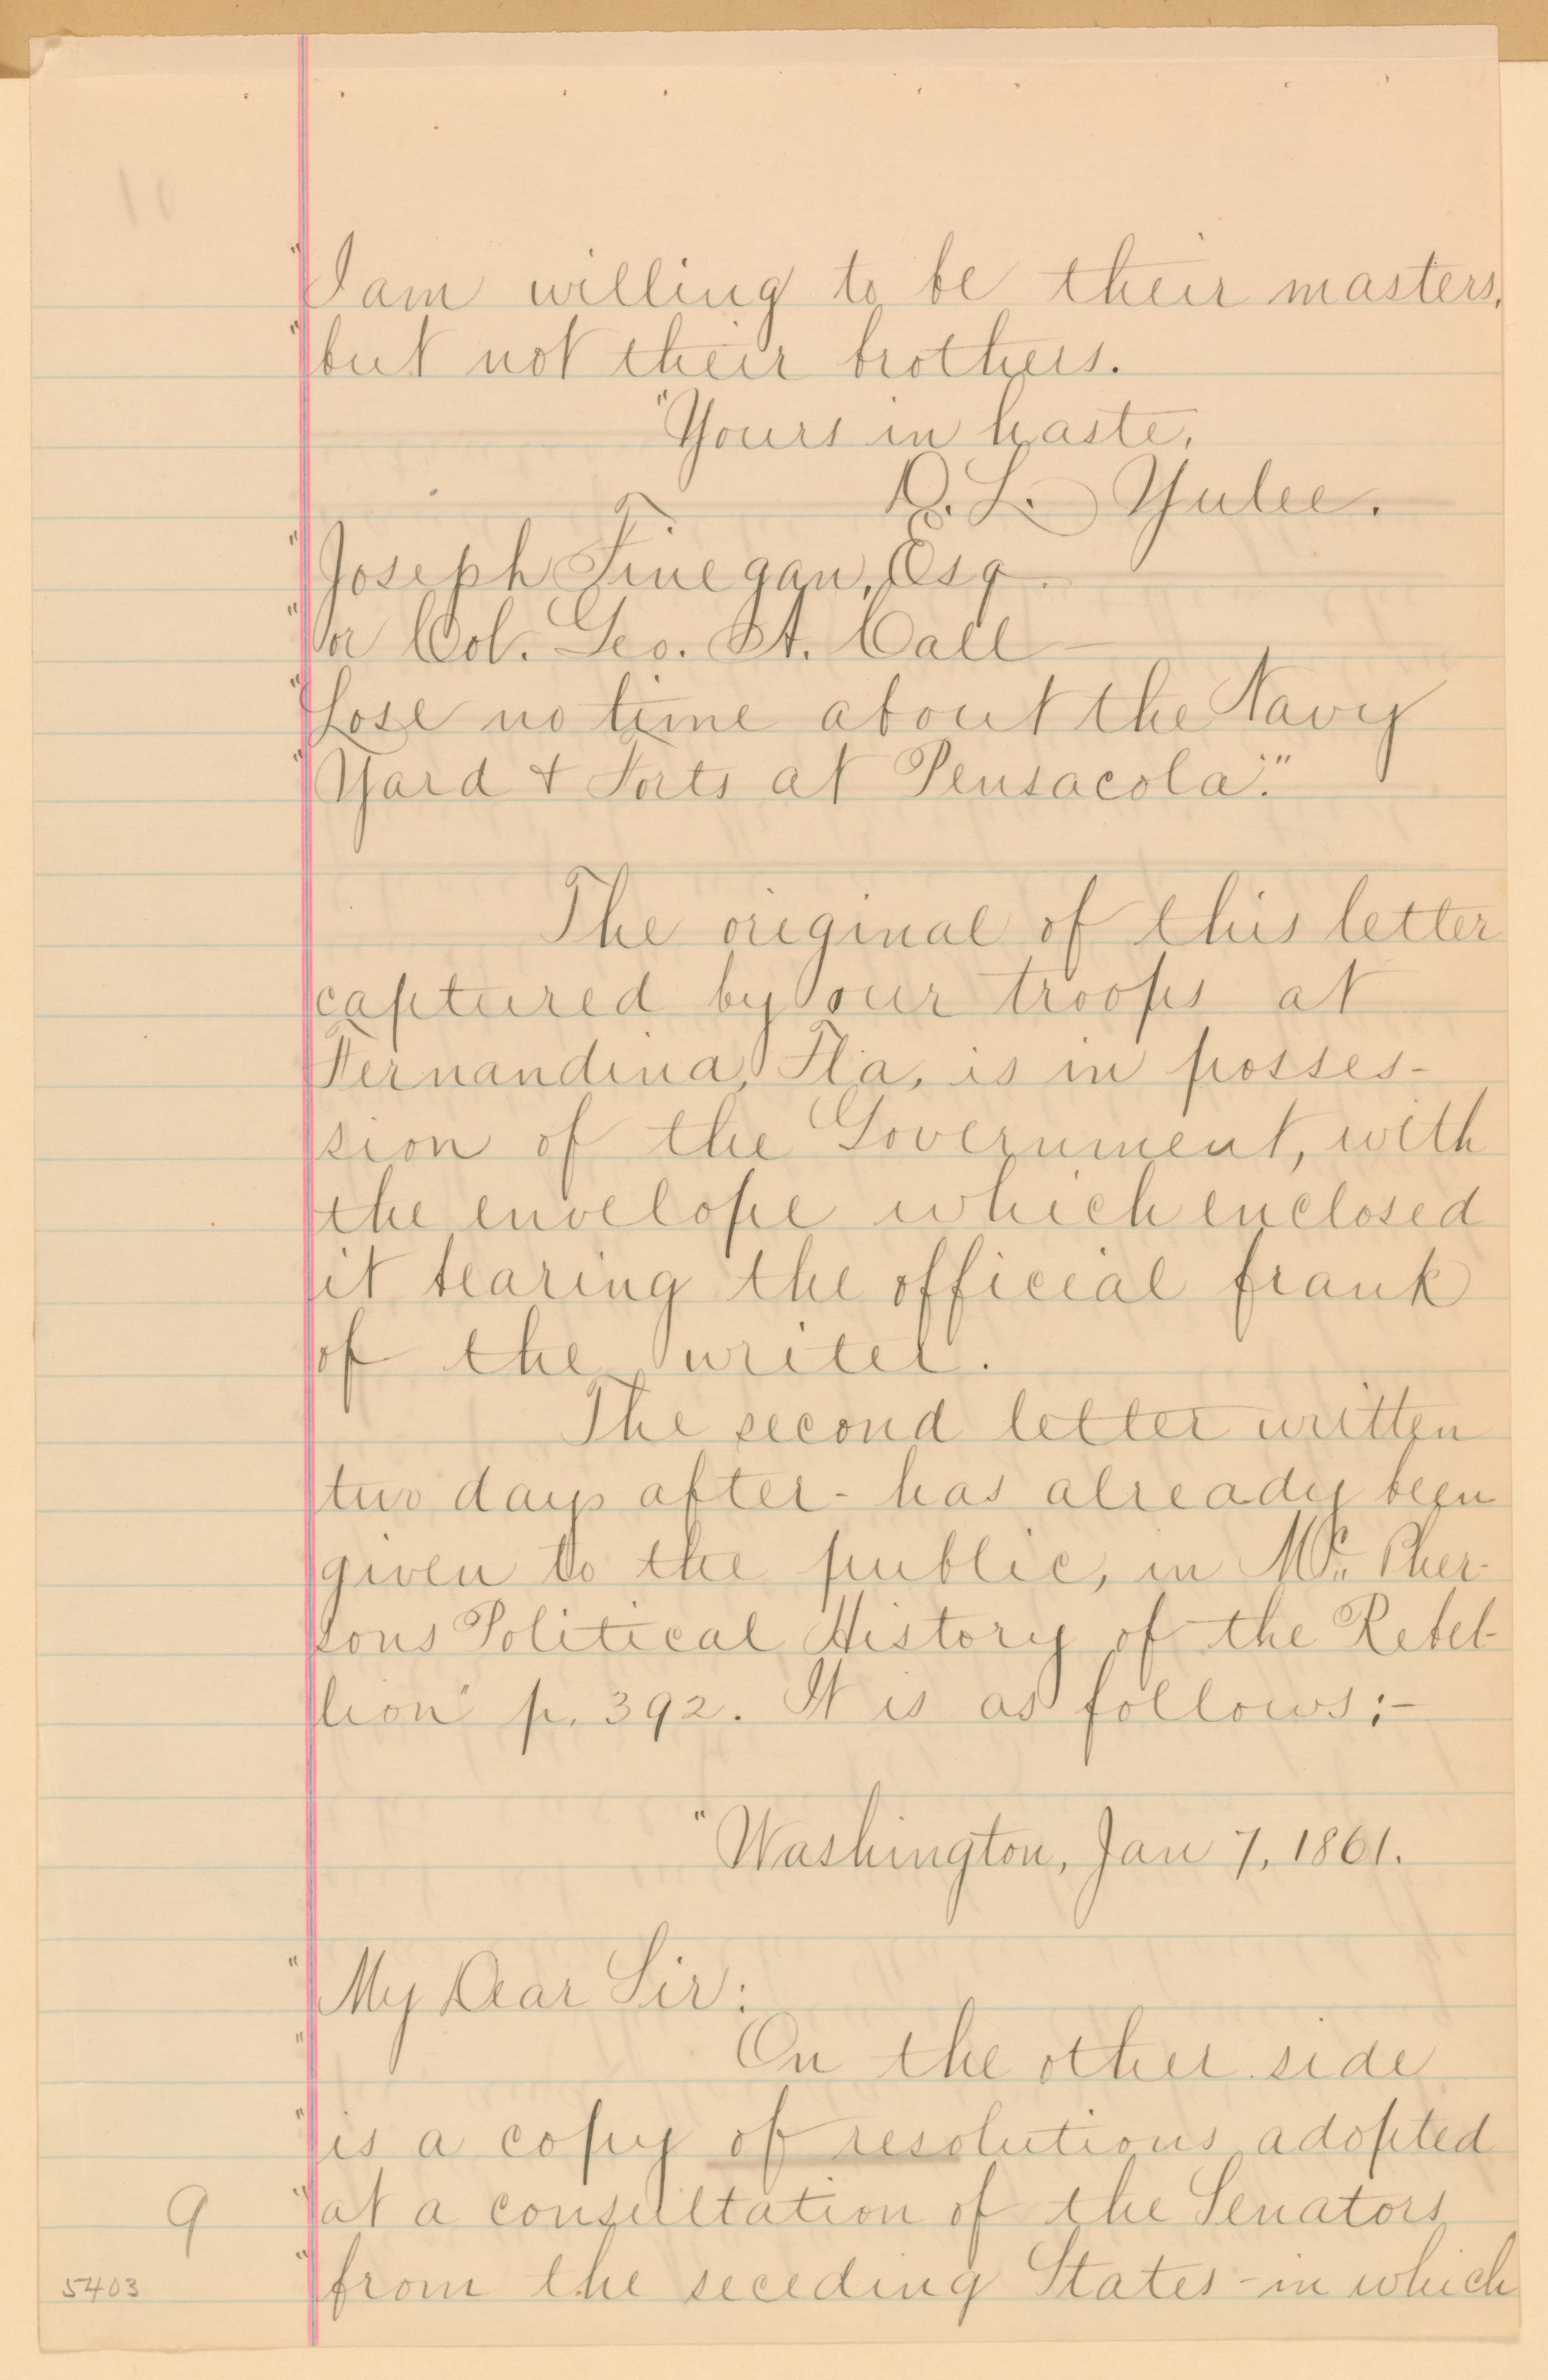 "I am willing to be their masters,
"but not their brothers.
"Yours in haste,
D. L. Yulee.
"Joseph Finegan, Esq.
"or Col. Geo. W. Call
"Lose no time about the Navy
"Yard & Forts at Pensacola."
The original of this letter
captured by our troops at
Fernandina, Fla, is in posses-
sion of the Government, with
the envelope which enclosed
it bearing the official frank
of the writer.
The second letter written
two days after - has already been
given to the public, in Mc. Pher-
sons Political History of the Rebel-
lion" p. 392. It is as follows:-
"Washington, Jan 7, 1861.
"My Dear Sir:
"On the other side
"is a copy of resolutions adopted
"at a consultation of the Senators
"from the seceding States - in which
9
5403